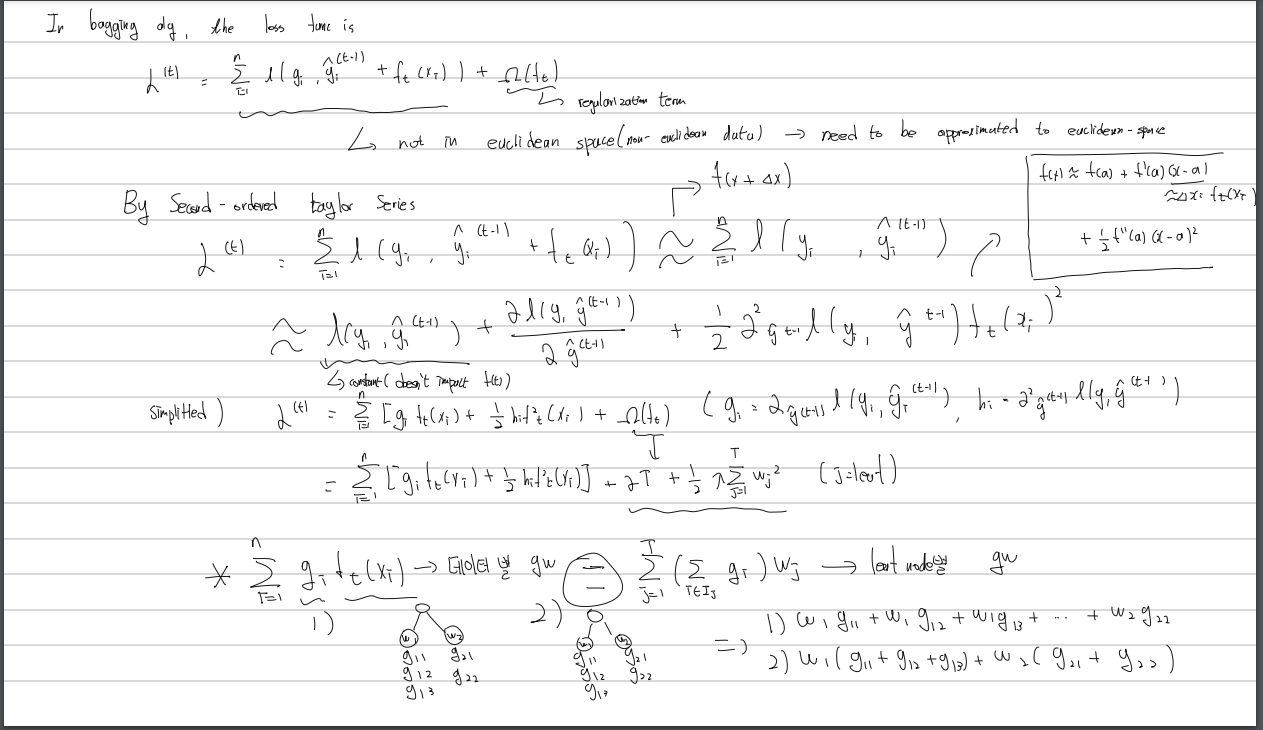 In bagging alg, the loss func is
L^(t) = Σ_{i=1}^{n} l(y_i, ŷ_i^(t-1) + f_t(x_i)) + Ω(f_t)
↳ regularization term
↳ not in euclidean space (non-euclidean data) → need to be approximated to euclidean-space
f(x) ≈ f(a) + f'(a)(x-a)
≈Δx: f_t(x_i)
+ 1/2 f''(a)(x-a)²
→ f(x + Δx)
By Second-ordered taylor series
L^(t) = Σ_{i=1}^{n} l(y_i, ŷ_i^(t-1) + f_t(x_i)) ≈ Σ_{i=1}^{n} l(y_i, ŷ_i^(t-1))
≈ l(y_i, ŷ_i^(t-1)) + ∂l(y, ŷ^(t-1)) / ∂ŷ^(t-1) + 1/2 ∂²_ŷ^t-1 l(y_i, ŷ^t-1) f_t(x_i)²
↳ constant (doesn't impact f(t))
simplified) L^(t) = Σ_{i=1}^{n} [g_i f_t(x_i) + 1/2 h_i f²_t(x_i) + Ω(f_t) (g_i = ∂_ŷ^(t-1) l(y_i, ŷ_i^(t-1)), h_i = ∂²_ŷ^(t-1) l(y, ŷ^(t-1))
= Σ_{i=1}^{n} [g_i f_t(x_i) + 1/2 h_i f²_t(x_i)] + γT + 1/2 λ Σ_{j=1}^{T} w_j² (j=leaf)
* Σ_{i=1}^{n} g_i f_t(x_i) → 데이터 별 gw = Σ_{j=1}^{T} (Σ_{i∈I_j} g_i) w_j → leaf node별 gw
1) 2)
w_1 w_2 w_1 w_2
g_11 g_21 g_11 g_21
g_12 g_22 g_12 g_22
g_13 g_13
⇒ 1) w_1 g_11 + w_1 g_12 + w_1 g_13 + ... + w_2 g_22
2) w_1(g_11 + g_12 + g_13) + w_2(g_21 + g_22)